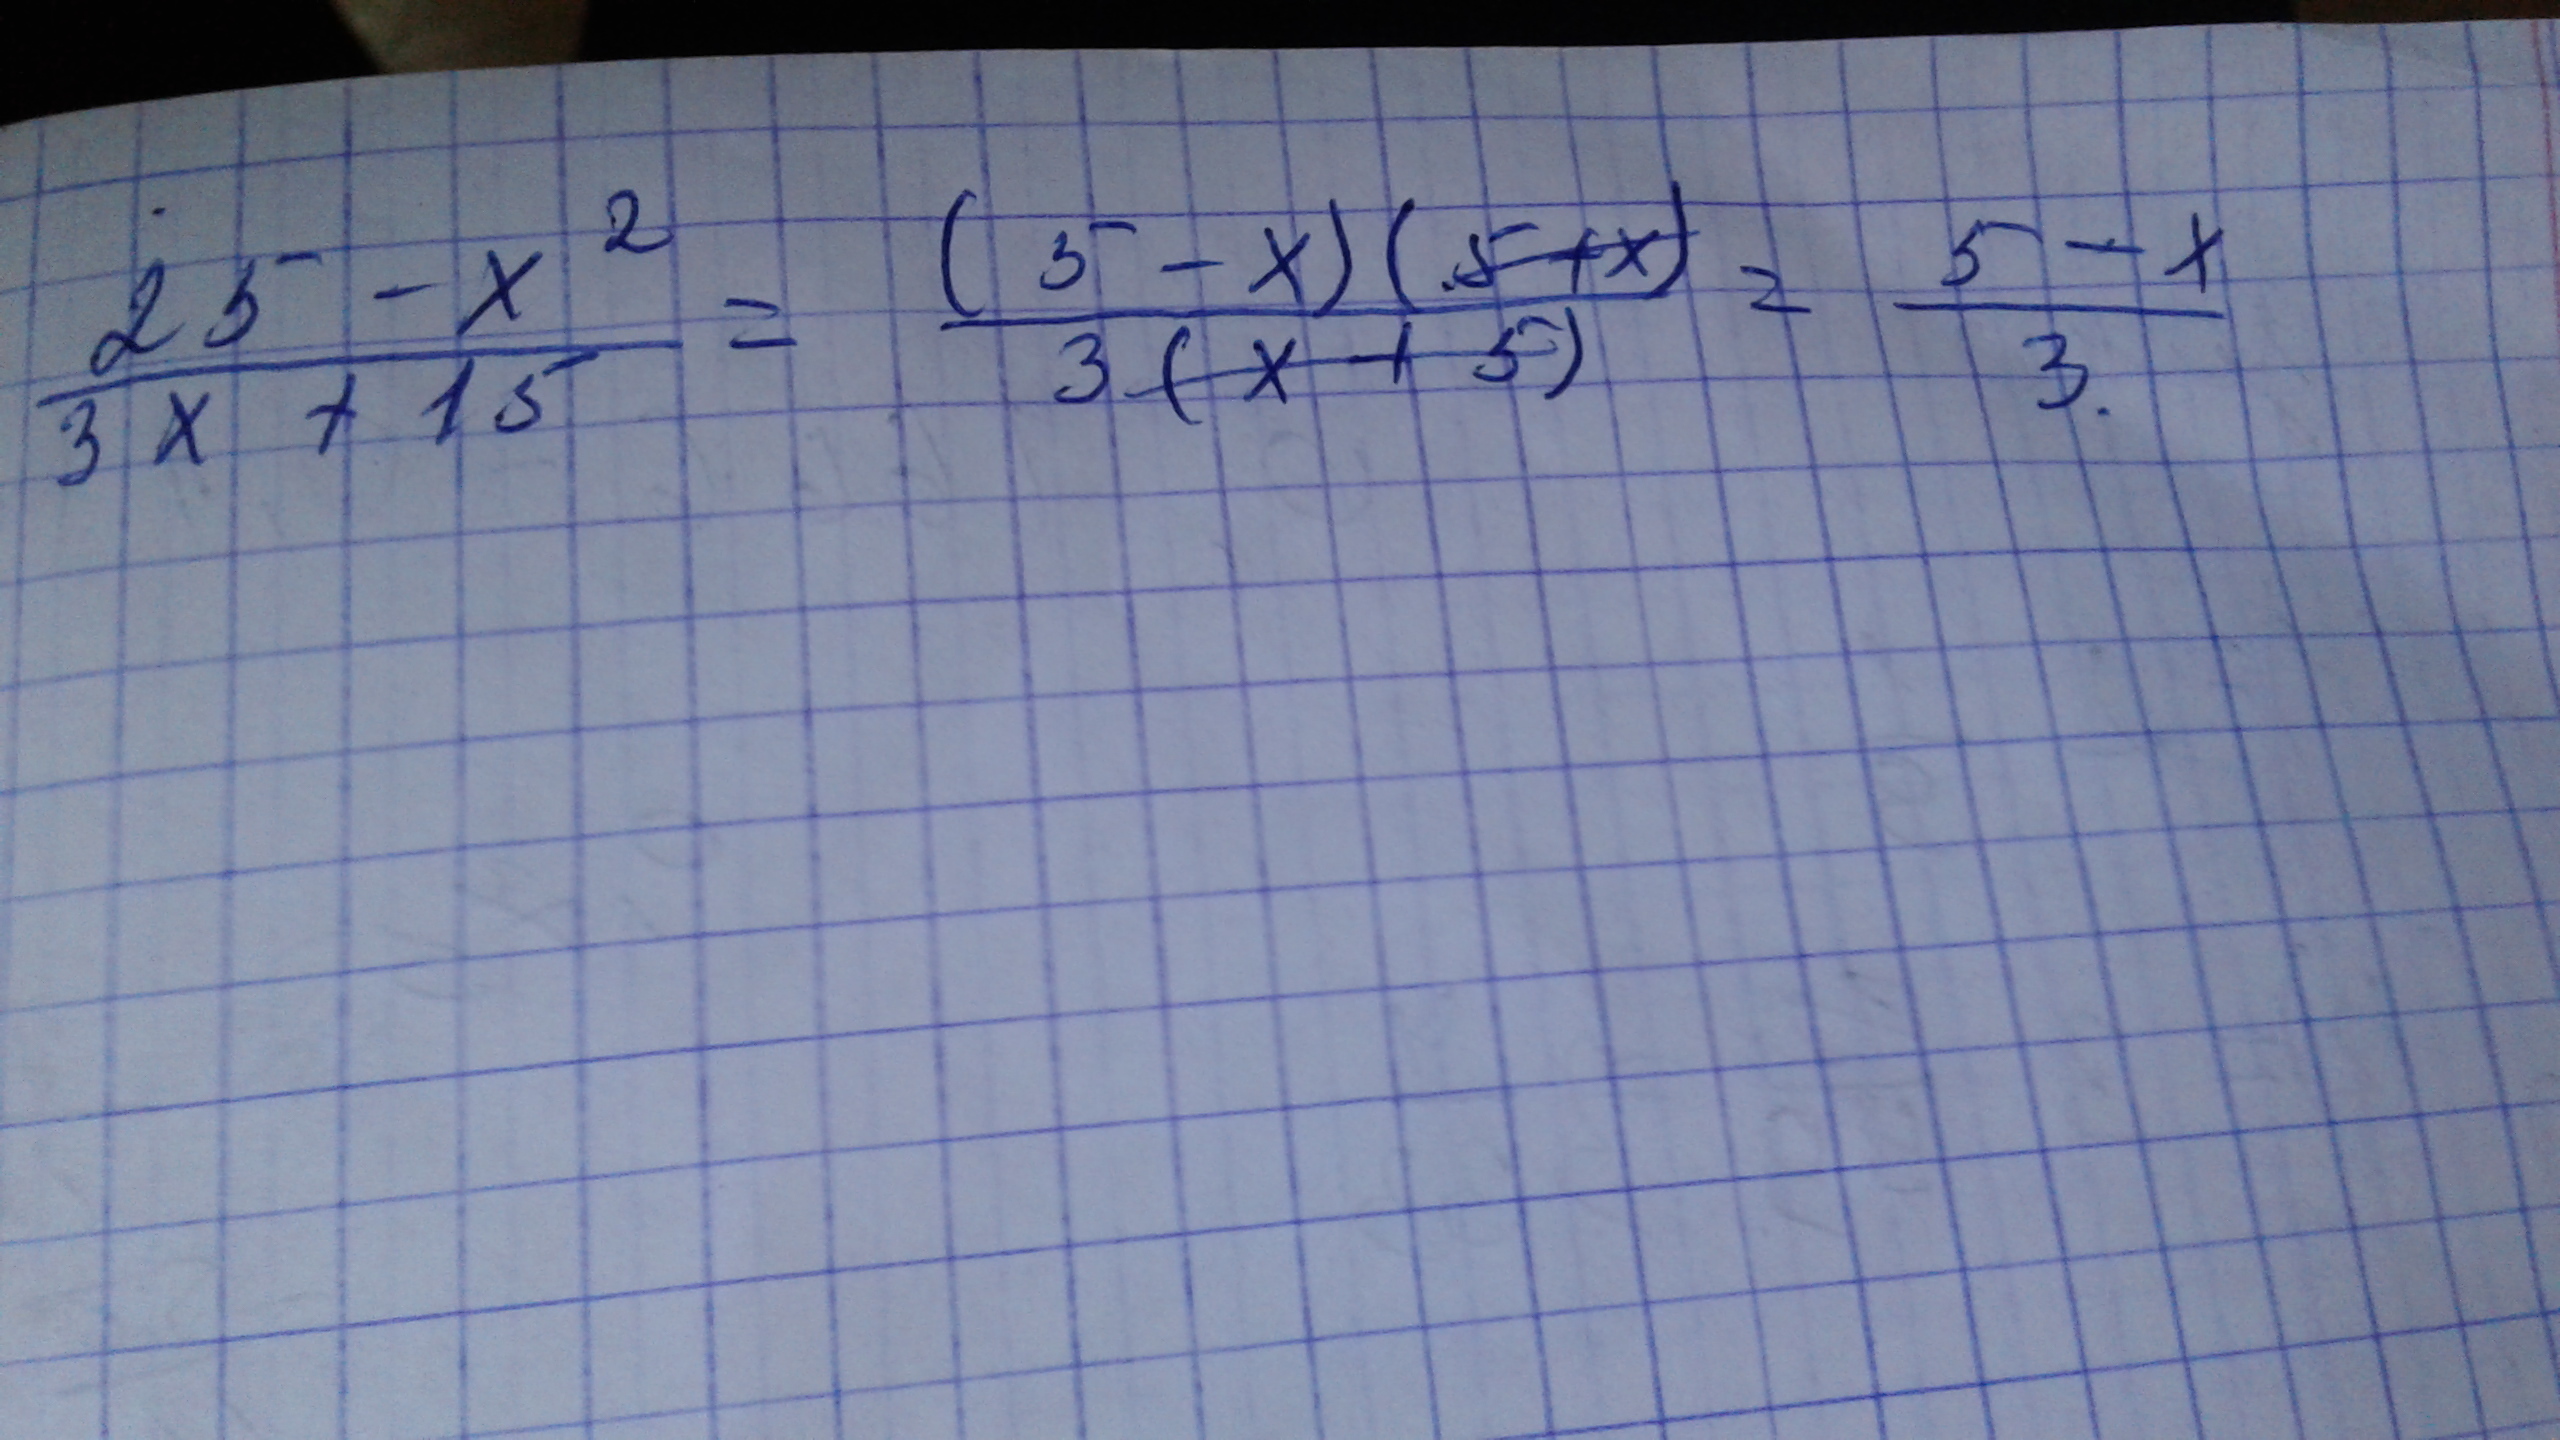 25 - x² / 3x + 15 = (5 - x)(5 + x) / 3(x + 5) = 5 - x / 3.